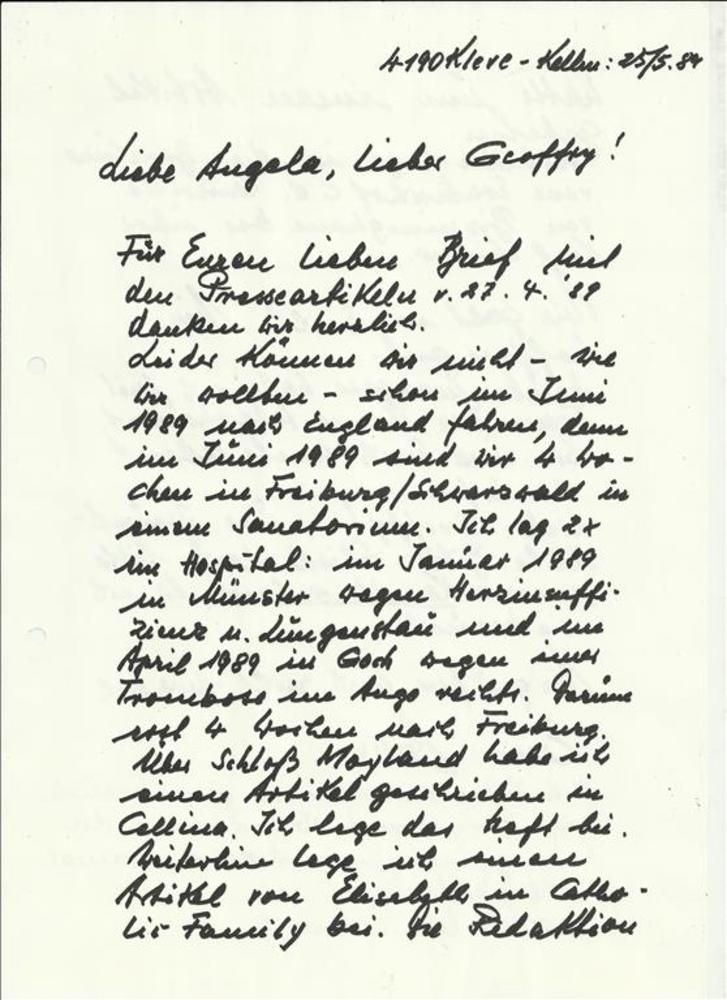 4190 Kleve - Kellen: 25/5.89
Liebe Angela, lieber Geoffry!
Für Euren lieben Brief und
den Presseartikeln v. 27. 4. '89
danken wir herzlich.
Leider können wir nicht - wie
wir wollten - schon im Juni
1989 nach England fahren, denn
im Juni 1989 sind wir 4 Wo-
chen in Freiburg/Schwarzwald in
einem Sanatorium. Ich lag 2x
im Hospital: im Januar 1989
in Münster wegen Herzinsuffi-
zienz u. Lungenstau und im
April 1989 in Goch wegen einer
Trombose im Auge rechts. Darum
erst 4 Wochen nach Freiburg.
Über Schloß Moyland habe ich
einen Artikel geschrieben in
Cellina. Ich lege das Heft bei.
Weiterhin lege ich einen
Artikel von Elisabeth in Catho-
lic Family bei. Die Redaktion